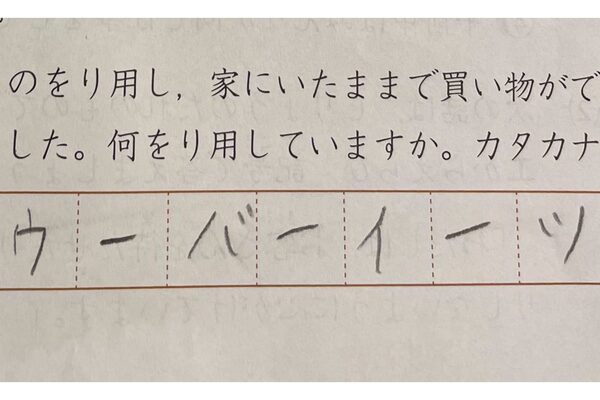 のをり用し，家にいたままで買い物がで
した。何をり用していますか。カタカナ
ウーバーイーツ